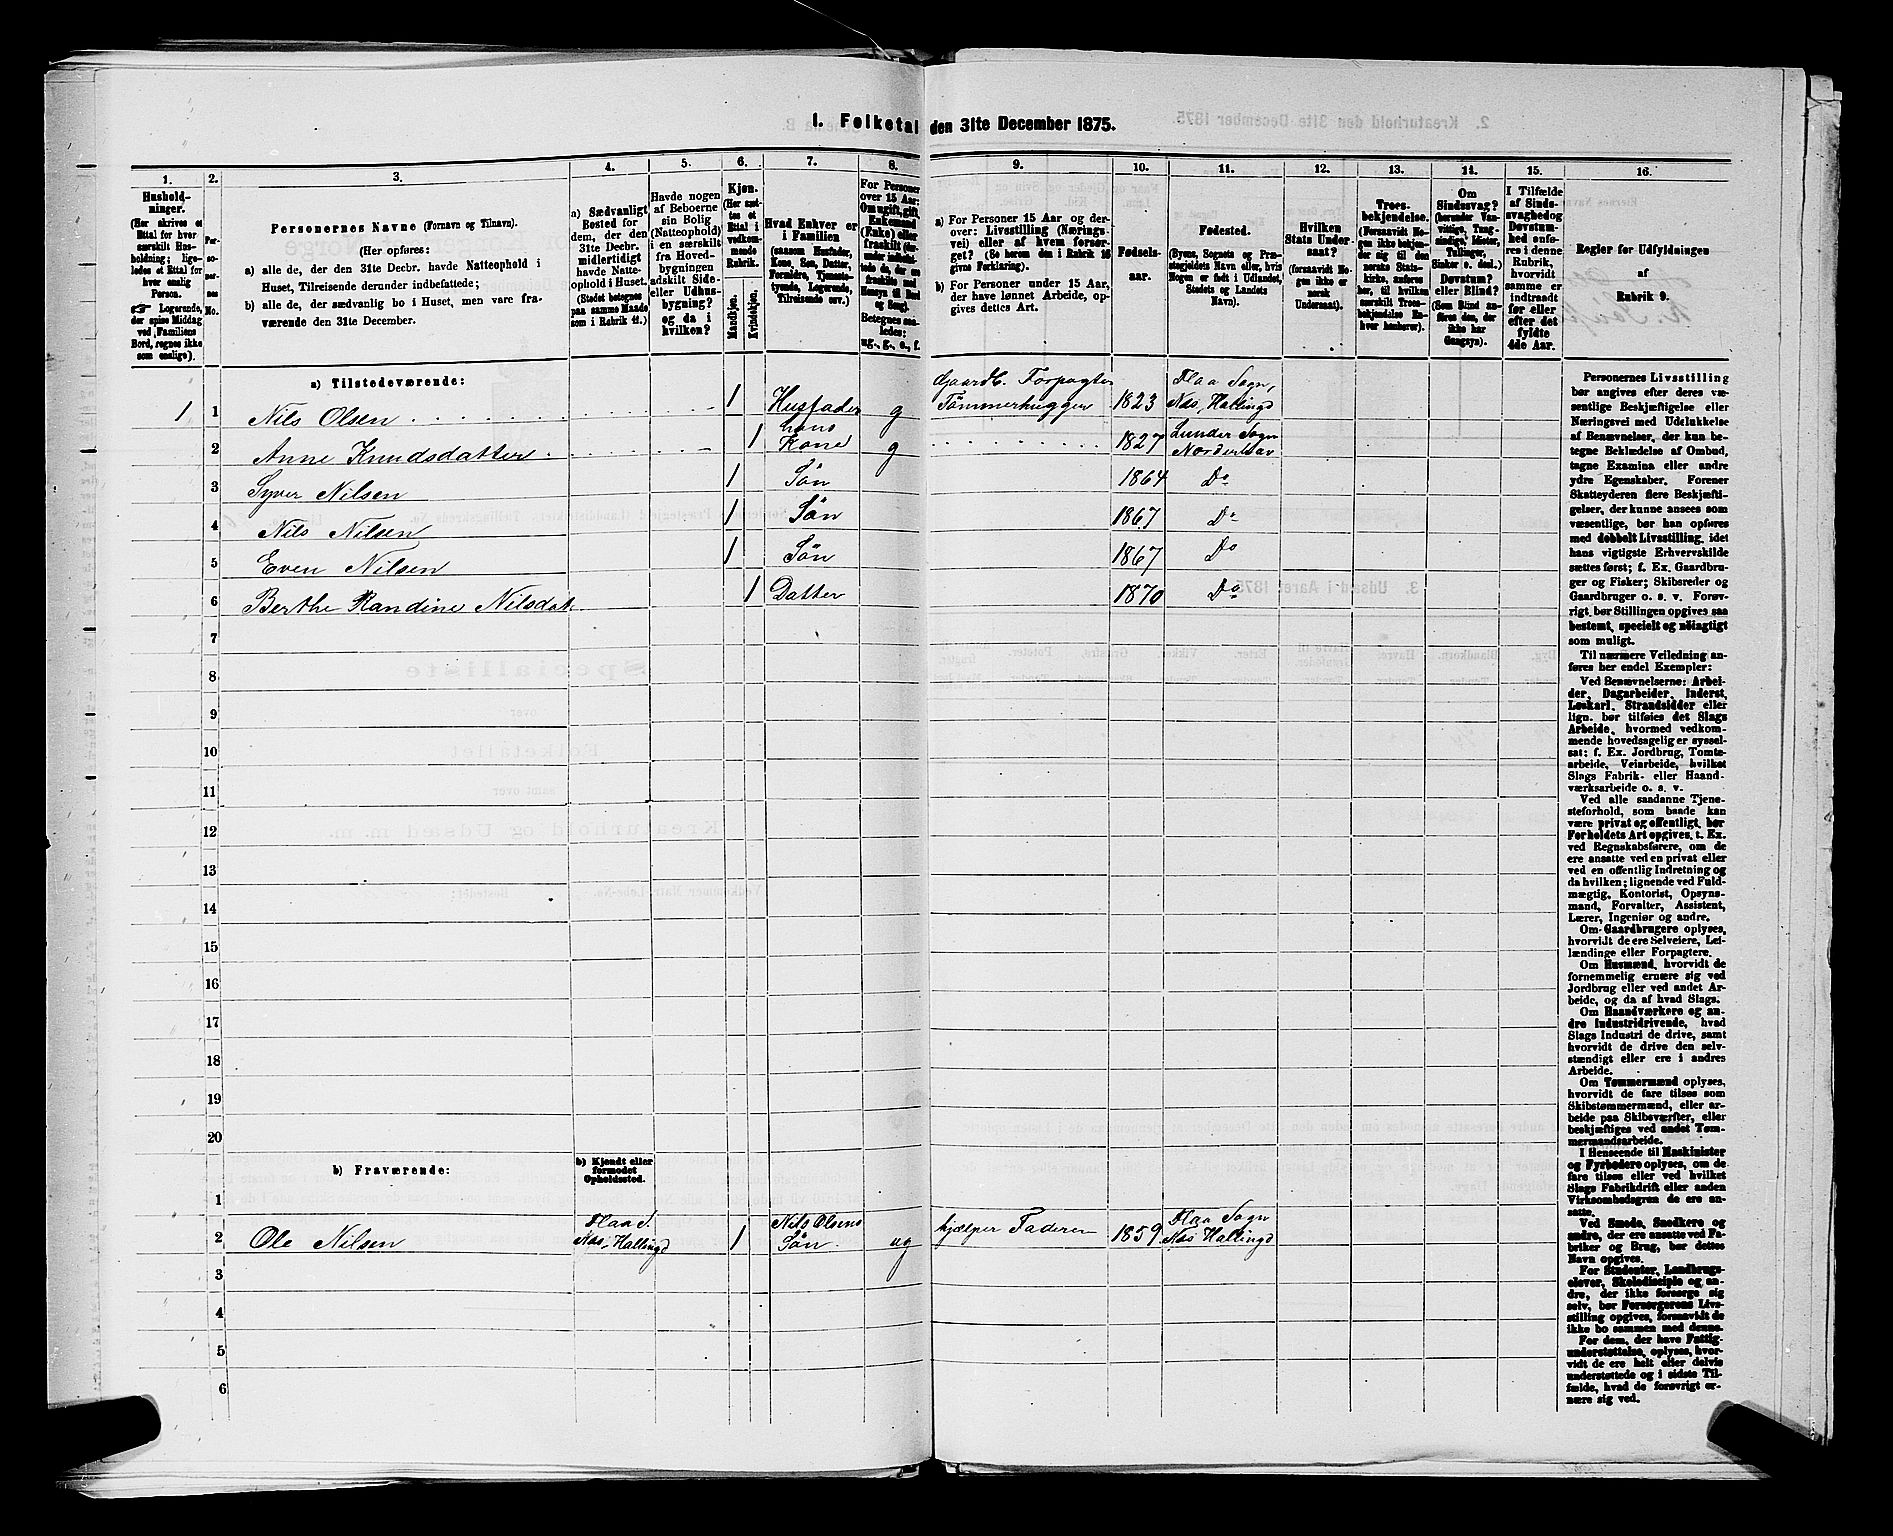 1. Folketal den 31te December 1875.
1. 2. 3. 4. 5. 6. 7. 8. 9. 10. 11. 12. 13. 14. 15. 16.
Hushold-
ninger.
(Her skrives et
Ettal for hver
særskilt Hus-
holdning; lige-
ledes et Ettal for
hver enslig
Person.
☞ Logerende,
der spise Middag
ved Familiens
Bord, regnes ikke
som enslige).
Per-
so-
ner-
nes
No.
Personernes Navne (Fornavn og Tilnavn).
(Her opføres:
a) alle de, der den 31te Decbr. havde Natteophold i
Huset, Tilreisende derunder indbefattede;
b) alle de, der sædvanlig bo i Huset, men vare fra-
værende den 31te December.
a) Sædvanligt
Bosted for
dem, der den
31te Decbr.
midlertidigt
havde Natte-
ophold i Huset.
(Stedet betegnes
paa samme Maade
som i Rubrik 11.)
Havde nogen
af Beboerne
sin Bolig
(Natteophold)
i en særskilt
fra Hoved-
bygningen
adskilt Side-
eller Udhus-
bygning?
og da i
hvilken?
Kjøn.
(Her sæt-
tes et
Ettal i
vedkom-
mende
Rubrik.
Mandkjøn.
Kvindekjøn.
Hvad Enhver er
i Familien
(saasom Husfader,
Kone, Søn, Datter,
Forældre, Tjeneste-
tyende, Logerende,
Tilreisende osv.)
For Personer
over 15 Aar:
Om ugift, gift,
Enkemand
(Enke) eller
fraskilt
Betegnes saa-
ledes:
ug., g., e., f.
a) For Personer 15 Aar og der-
over: Livsstilling (Nærings-
vei) eller af hvem forsør-
get? (Se herom den i Rubrik 16
givne Forklaring).
b) For Personer under 15 Aar,
der have lønnet Arbeide, op-
gives dettes Art.
Fødsels-
aar.
Fødested.
(Byens, Sognets og Præ-
stegjeldets Navn eller, hvis
Nogen er født i Udlandet,
Stedets og Landets
Navn).
Hvilken
Stats Under-
saat?
(forsaavidt No-
gen ikke er
norsk
Undersaat).
Troes-
bekjendelse.
(Forsaavidt No-
gen ikke bekjen-
der sig til den
norske Stats-
kirke, anføres
her, til hvilken
særskilt Troes-
bekjendelse En-
hver henhører).
Om
Sindssvag?
(herunder Van-
vittige, Tung-
sindige, Idioter,
Tullinger,
Sinker o. desl.)
Døvstum?
eller Blind?
(Som Blind an-
føres den, der
ikke har
Gangsyn).
I Tilfælde
af Sinds-
svaghed og
Døvstum-
hed anfø-
res i denne
Rubrik,
hvorvidt
samme er
indtraadt
før eller
efter det
fyldte
4de Aar.
Regler for Udfyldningen
af
Rubrik 9.
a) Tilstedeværende:
Gaardb. Forpagter Flaa Sogn,
1 1 Nils Olsen 1 Husfader g Tømmerhugger 1823 Næs, Hallingd
hans Lunder Sogn
2 Anne Knudsdatter 1 Kone g 1827 Norderhov
3 Syver Nilsen 1 Søn 1864 Do
4 Nils Nilsen 1 Søn 1867 Do
5 Even Nilsen 1 Søn 1867 Do
6 Berthe Randine Nilsdatt 1 Datter 1870 Do
7
8
9
10
11
12
13
14
15
16
17
18
19
20
b) Fraværende:
b) Kjendt eller
formodet
Opholdssted.
1
Flaa S. Nils Olsens Flaa Sogn
2 Ole Nilsen Næs, Hallingd 1 Søn ug hjælper Faderen 1859 Næs Hallingd
3
4
5
6
Personernes Livsstilling
bør angives efter deres væ-
sentlige Beskjæftigelse eller
Næringsvei med Udelukkelse
af Benævnelser, der kun be-
tegne Beklædelse af Ombud,
tagne Examina eller andre
ydre Egenskaber. Forener
Skatteyderen flere Beskjæfti-
gelser, der kunne ansees som
væsentlige, bør han opføres
med dobbelt Livsstilling, idet
hans vigtigste Erhvervskilde
sættes først; f. Ex. Gaardbru-
ger og Fisker; Skibsreder og
Gaardbruger o. s. v. Forøv-
rigt bør Stillingen opgives saa
bestemt, specielt og nøiagtigt
som muligt.
Til nærmere Veiledning an-
føres her endel Exempler:
Ved Benævnelserne: Arbei-
der, Dagarbeider, Inderst,
Løskarl, Strandsidder eller
lign. bør tilføies det Slags
Arbeide, hvormed vedkom-
mende hovedsagelig er syssel-
sat; f. Ex. Jordbrug, Tomte-
arbeide, Veiarbeide, hvilket
Slags Fabrik- eller Haand-
værksarbeide o. s. v.
Ved alle saadanne Tjene-
steforhold, som baade kan
være privat og offentligt, bør
Forholdets Art opgives, t. Ex.
ved Regnskabsførere, om de
ere ansatte ved en privat eller
ved en offentlig Indretning og
da hvilken; lignende ved Fuld-
mægtig, Kontorist, Opsyns-
mand, Forvalter, Assistent,
Lærer, Ingeniør og andre.
Om Gaardbrugere oplyses,
hvorvidt de ere Selveiere, Lei-
lændinge eller Forpagtere.
Om Husmænd, hvorvidt de
fornemmelig ernære sig ved
Jordbrug eller ved andet Ar-
beide, og da af hvad Slags.
Om Haandværkere og an-
dre Industridrivende, hvad
Slags Industri de drive, samt
hvorvidt de drive den selv-
stændigt eller ere i andres
Arbeide.
Om Tømmermænd oplyses,
hvorvidt de fare tilsøs som
Skibstømmermænd, eller ar-
beide paa Skibsværfter, eller
beskjæftiges ved andet Tøm-
mermandsarbeide.
I Henseende til Maskinister
og Fyrbødere oplyses, om de
fare tilsøs eller ved hvilket
Slags Fabrikdrift eller anden
Virksomhedsgren de ere an-
satte.
Ved Smede, Snedkere og
andre, der ere ansatte ved Fa-
briker og Brug, bør dettes
Navn opgives.
For Studenter, Landbrugs-
elever, Skoledisciple og an-
dre, der ikke forsørge sig
selv, bør Forsørgerens Livs-
stilling opgives, forsaavidt de
ikke bo sammen med denne.
For dem, der have Fattig-
understøttelse, oplyses, hvor-
vidt de ere helt eller delvis
understøttede og i sidste Til-
fælde, hvad de forøvrigt er-
nære sig ved.